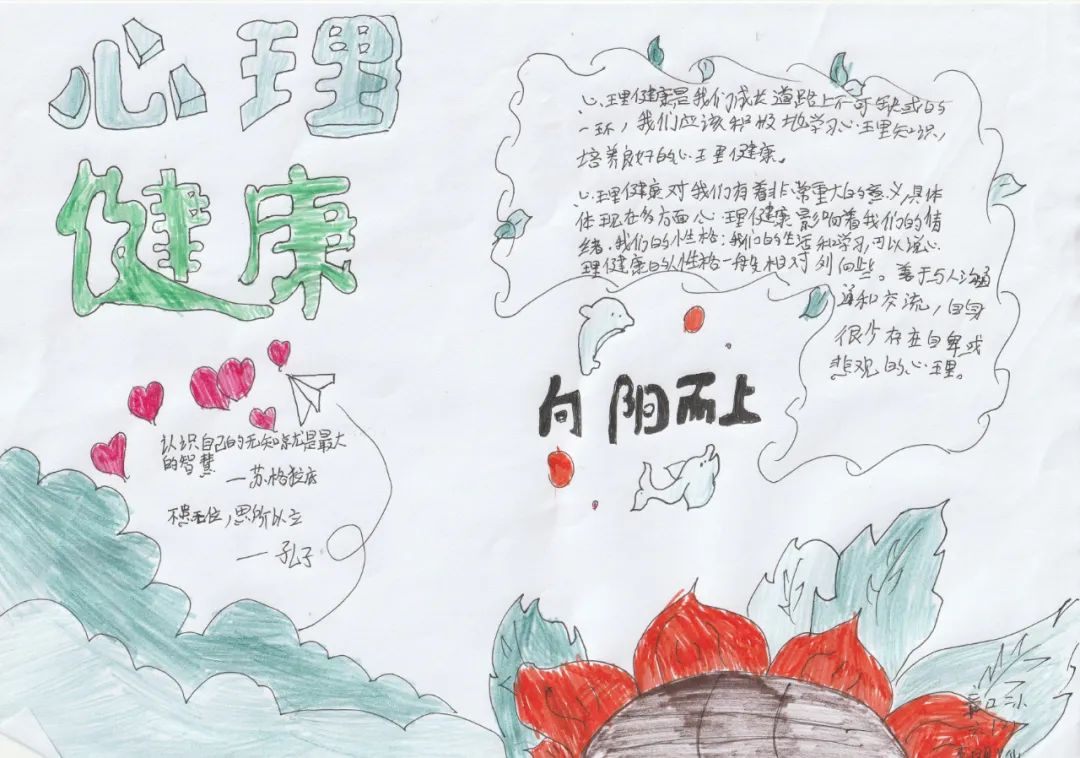 心理
健康
心理健康是我们成长道路上不可缺或的
一环，我们应该积极地学习心理知识，
培养良好的心理健康。
心理健康对我们有着非常重大的意义，具体
体现在多方面心理健康影响着我们的情
绪，我们的性格；我们的生活和学习，可以说心
理健康的人性格一般相对外向些。善于与人沟通
和交流，自身
很少存在自卑或
悲观的心理。
向阳而上
认识自己的无知就是最大
的智慧
—苏格拉底
不患无位，患所以立
—孔子